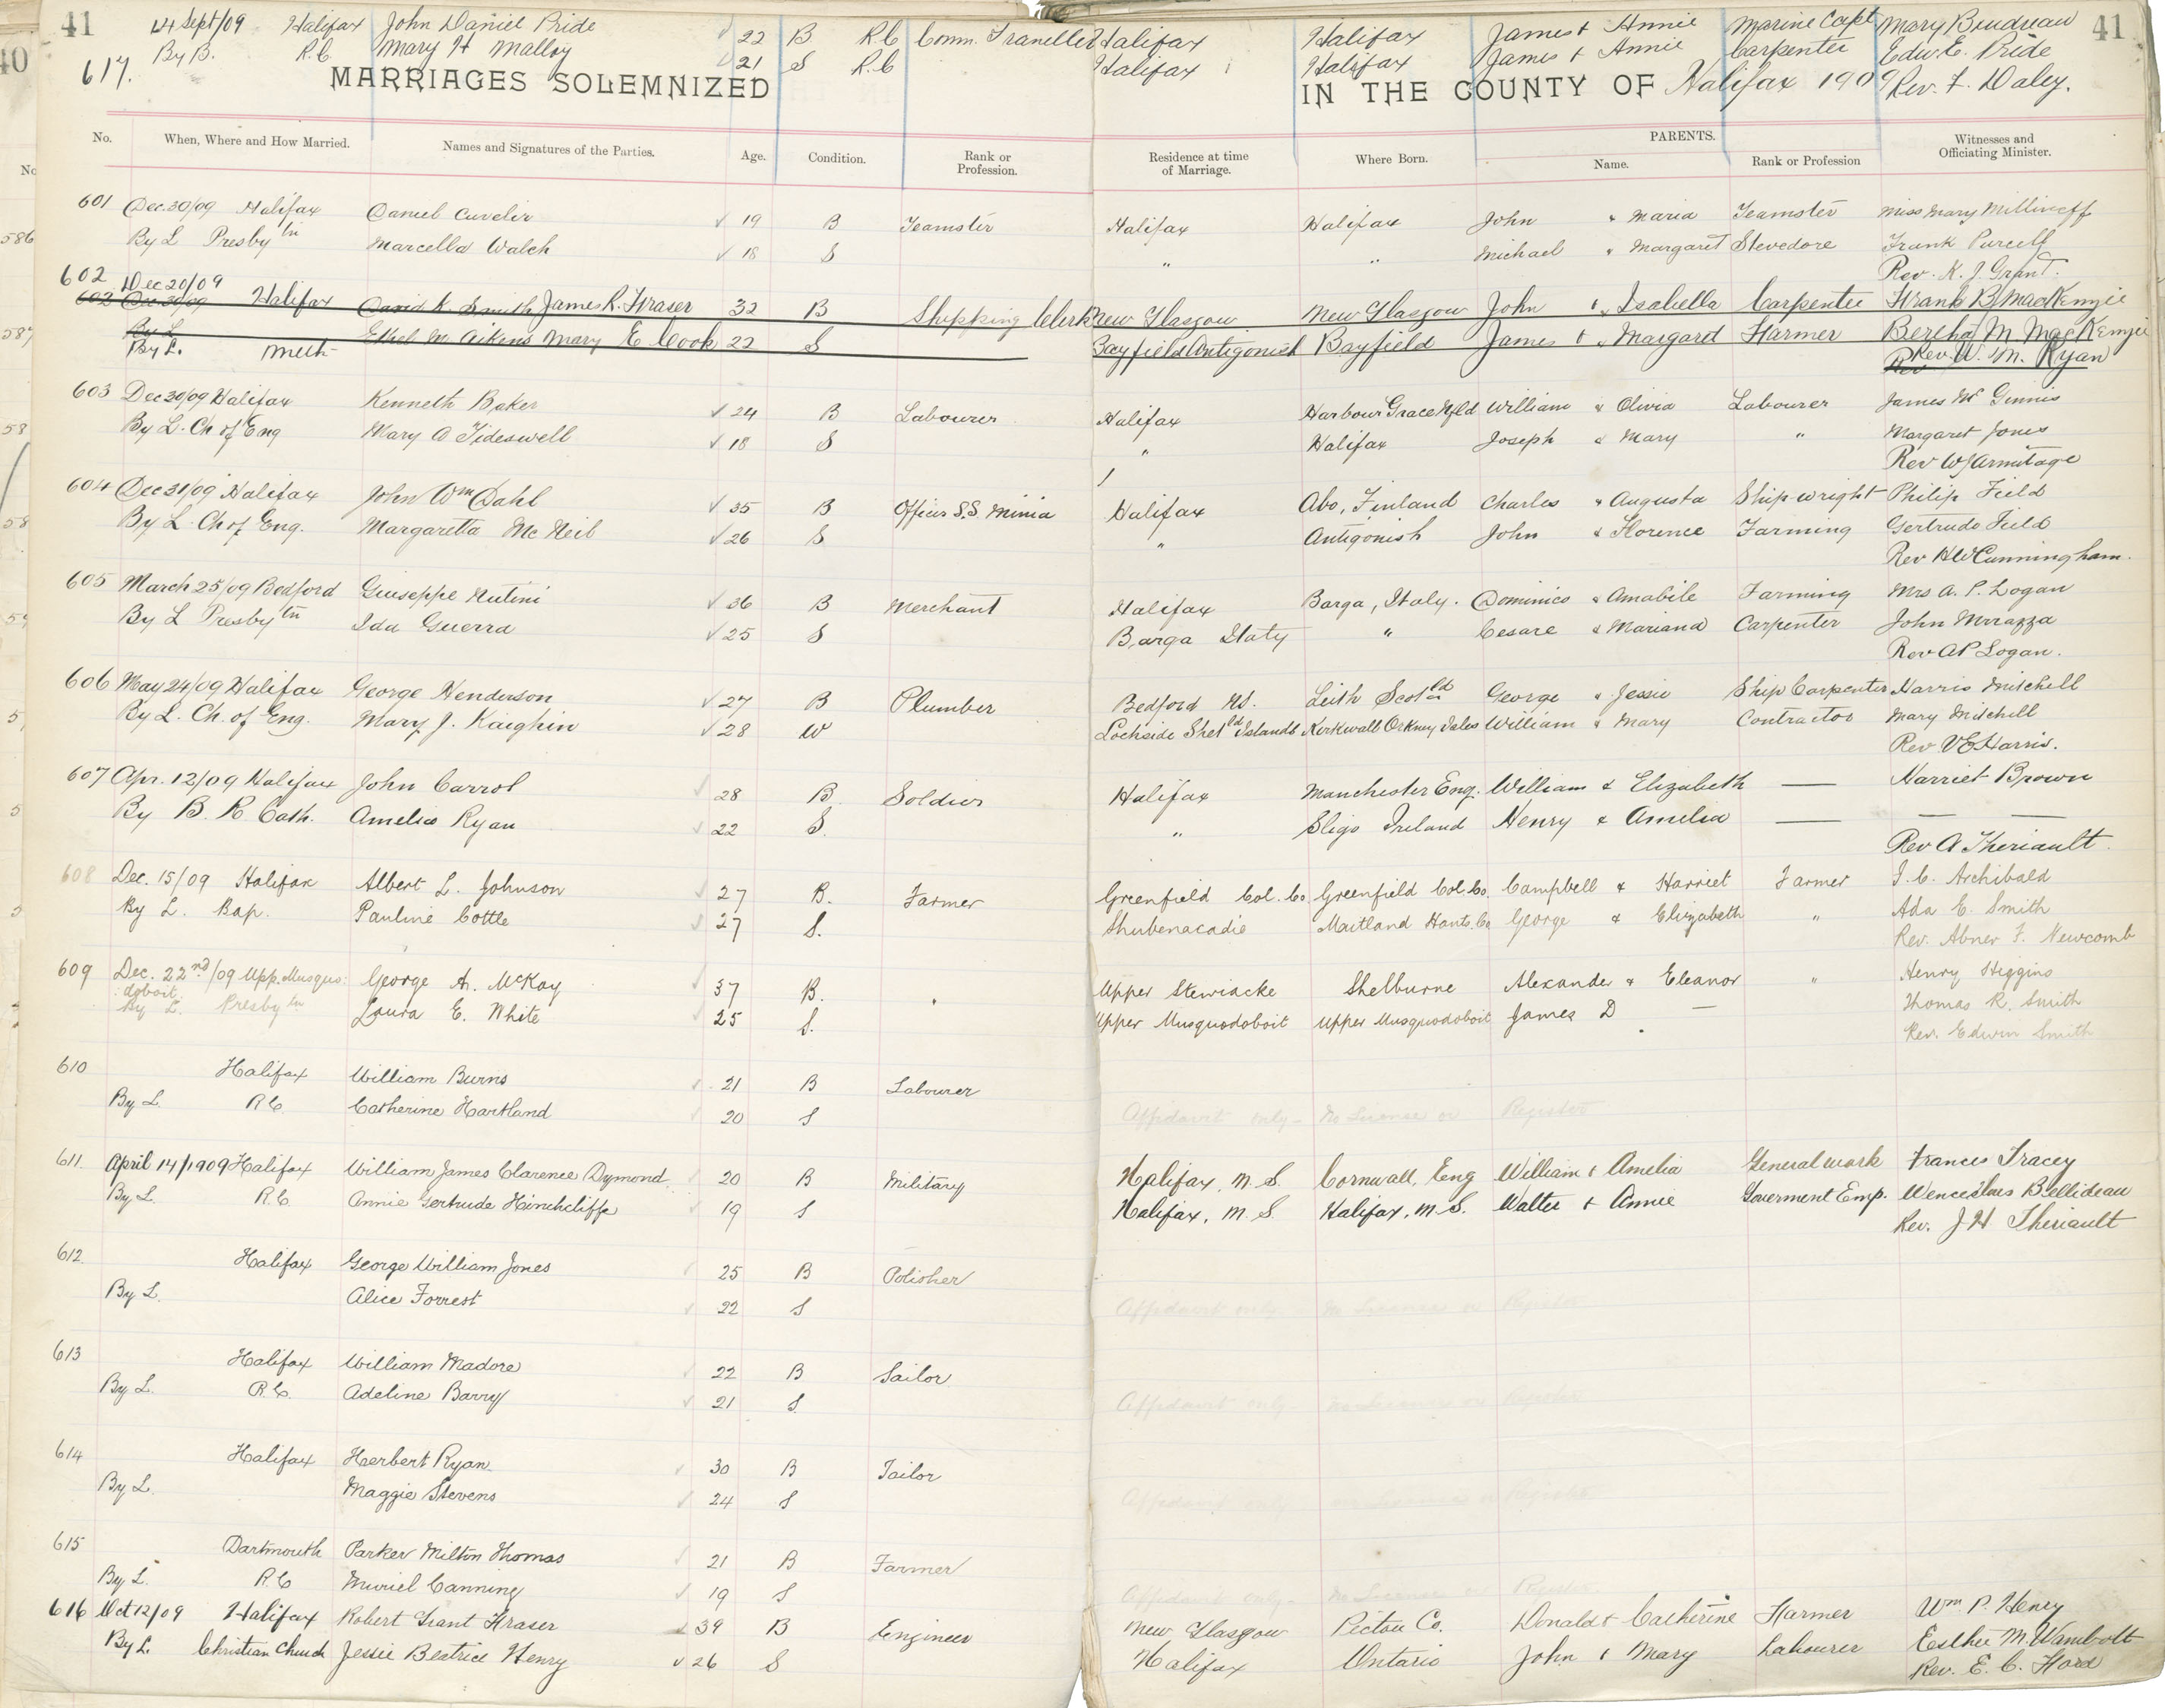 41 14 Sept/09 Halifax John Daniel Pride 22 B R.C Comm. Traveller Halifax Halifax James & Annie Marine Capt Mary Boudreau 41
617. By B. R.C. Mary H Malloy 21 S R.C Halifax Halifax James & Annie Carpenter Edw. E. Pride
MARRIAGES SOLEMNIZED IN THE COUNTY OF Halifax 1909 Rev. F. Daley.
No. When, Where and How Married. Names and Signatures of the Parties. Age. Condition. Rank or Profession. Residence at time of Marriage. Where Born. PARENTS. Name. Rank or Profession Witnesses and Officiating Minister.
601 Dec. 30/09 Halifax Daniel Cuvelir 19 B Teamster Halifax Halifax John & Maria Teamster Miss Mary Millineff
By L Presbytn Marcella Walch 18 S " " Michael " Margaret Stevedore Frank Purcell
Rev. K. J. Grant.
602 Dec 20/09
602 Dec 30/09 Halifax David K Smith James R. Fraser 32 B Shipping Clerk New Glasgow New Glasgow John & Isabella Carpenter Frank B MacKenzie
By L Ethel M Aikens Mary E. Cook 22 S Bayfield Antigonish Bayfield James & Margaret Farmer Bertha M MacKenzie
By L. Meth Rev. W. M. Ryan
603 Dec 30/09 Halifax Kenneth Baker 24 B Labourer Halifax Harbour Grace Nfld William & Olivia Labourer James Mc Ginnis
By L. Ch of Eng Mary A Tideswell 18 S " Halifax Joseph & Mary " Margaret Jones
Rev W J Armitage
604 Dec 31/09 Halifax John Wm Dahl 35 B Officer S.S Minia Halifax Abo, Finland Charles " Augusta Shipwright Philip Field
By L. Ch of Eng. Margaretta Mc Neil 26 S " Antigonish John & Florence Farming Gertrude Field
Rev H W Cunningham.
605 March 25/09 Bedford Giuseppe Nutini 36 B Merchant Halifax Barga, Italy. Dominico & Amabile Farming Mrs A. P. Logan
By L Presbytn Ida Guerra 25 S Barga Italy " Cesare & Mariana Carpenter John Mrrazza
Rev A P Logan.
606 May 24/09 Halifax George Henderson 27 B Plumber Bedford NS. Leith Scotld George & Jessie Ship Carpenter Harris Mitchell
By L. Ch. of Eng. Mary J. Kaighin 28 W Lochside Shetld Islands Kirkwall Orkney Isles William & Mary Contractor Mary Mitchell
Rev V E Harris.
607 Apr. 12/09 Halifax John Carrol 28 B Soldier Halifax Manchester Eng. William & Elizabeth — Harriet Brown
By B. R. Cath. Amelia Ryan 22 S. " Sligo Ireland Henry & Amelia — — —
Rev A Theriault.
608 Dec. 15/09 Halifax Albert L. Johnson 27 B. Farmer Greenfield Col. Co Greenfield Col. Co. Campbell & Harriet Farmer I. C. Archibald
By L. Bap. Pauline Cottle 27 S. Shubenacadie Maitland Hants. Co George & Elizabeth " Ada E. Smith
Rev. Abner F. Newcomb
609 Dec. 22nd/09 Upp. Musquo- George A. McKay 37 B. " Upper Stewiacke Shelburne Alexander & Eleanor " Henry Higgins
doboit.
By L. Presbytn Laura E. White 25 S. Upper Musquodoboit Upper Musquodoboit James D — Thomas R. Smith
Rev. Edwin Smith
610 Halifax William Burns 21 B Labourer
By L. R.C. Catherine Hartland 20 S Affidavit only - No License or Register
611 April 14/1909 Halifax William James Clarence Dymond 20 B Military Halifax, N.S. Cornwall, Eng William & Amelia General work Frances Tracey
By L. R.C. Annie Gertrude Hinchcliffe 19 S Halifax, N.S. Halifax, N.S. Walter & Annie Goverment Emp. Wenceslaus Bellideau
Rev. J H Theriault
612 Halifax George William Jones 25 B Polisher
By L. Alice Forrest 22 S Affidavit only - No License or Register
613 Halifax William Madore 22 B Sailor
By L. R.C. Adeline Barry 21 S Affidavit only - No License or Register
614 Halifax Herbert Ryan 30 B Tailor
By L. Maggie Stevens 24 S Affidavit only - no License or Register
615 Dartmouth Parker Milton Thomas 21 B Farmer
By L. R.C Muriel Canning 19 S Affidavit only - No License or Register
616 Oct 12/09 Halifax Robert Grant Fraser 39 B Engineer New Glasgow Pictou Co. Donald & Catherine Farmer Wm P. Henry
By L. Christian Church Jessie Beatrice Henry 26 S Halifax Ontario John & Mary Labourer Esther M. Wambolt
Rev. E. C. Ford